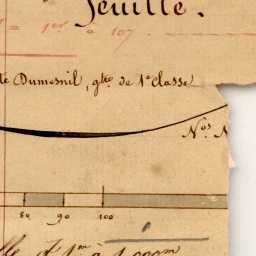 feuille.
= 1er à 107.
le Dumesnil, gtre de 1e classe
Nos N
80 90 100
lle d'1m à 1,000m